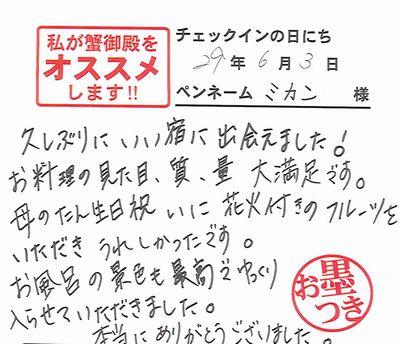 私が蟹御殿を
オススメ
します!!
チェックインの日にち
29年6月3日
ペンネーム ミカン 様
久しぶりにいい宿に出会えました!
お料理の見た目、質、量 大満足です。
母のたん生日祝いに花火付きのフルーツを
いただきうれしかったです。
お風呂の景色も最高でゆっくり
入らせていただきました。
本当にありがとうございました。
お墨つき